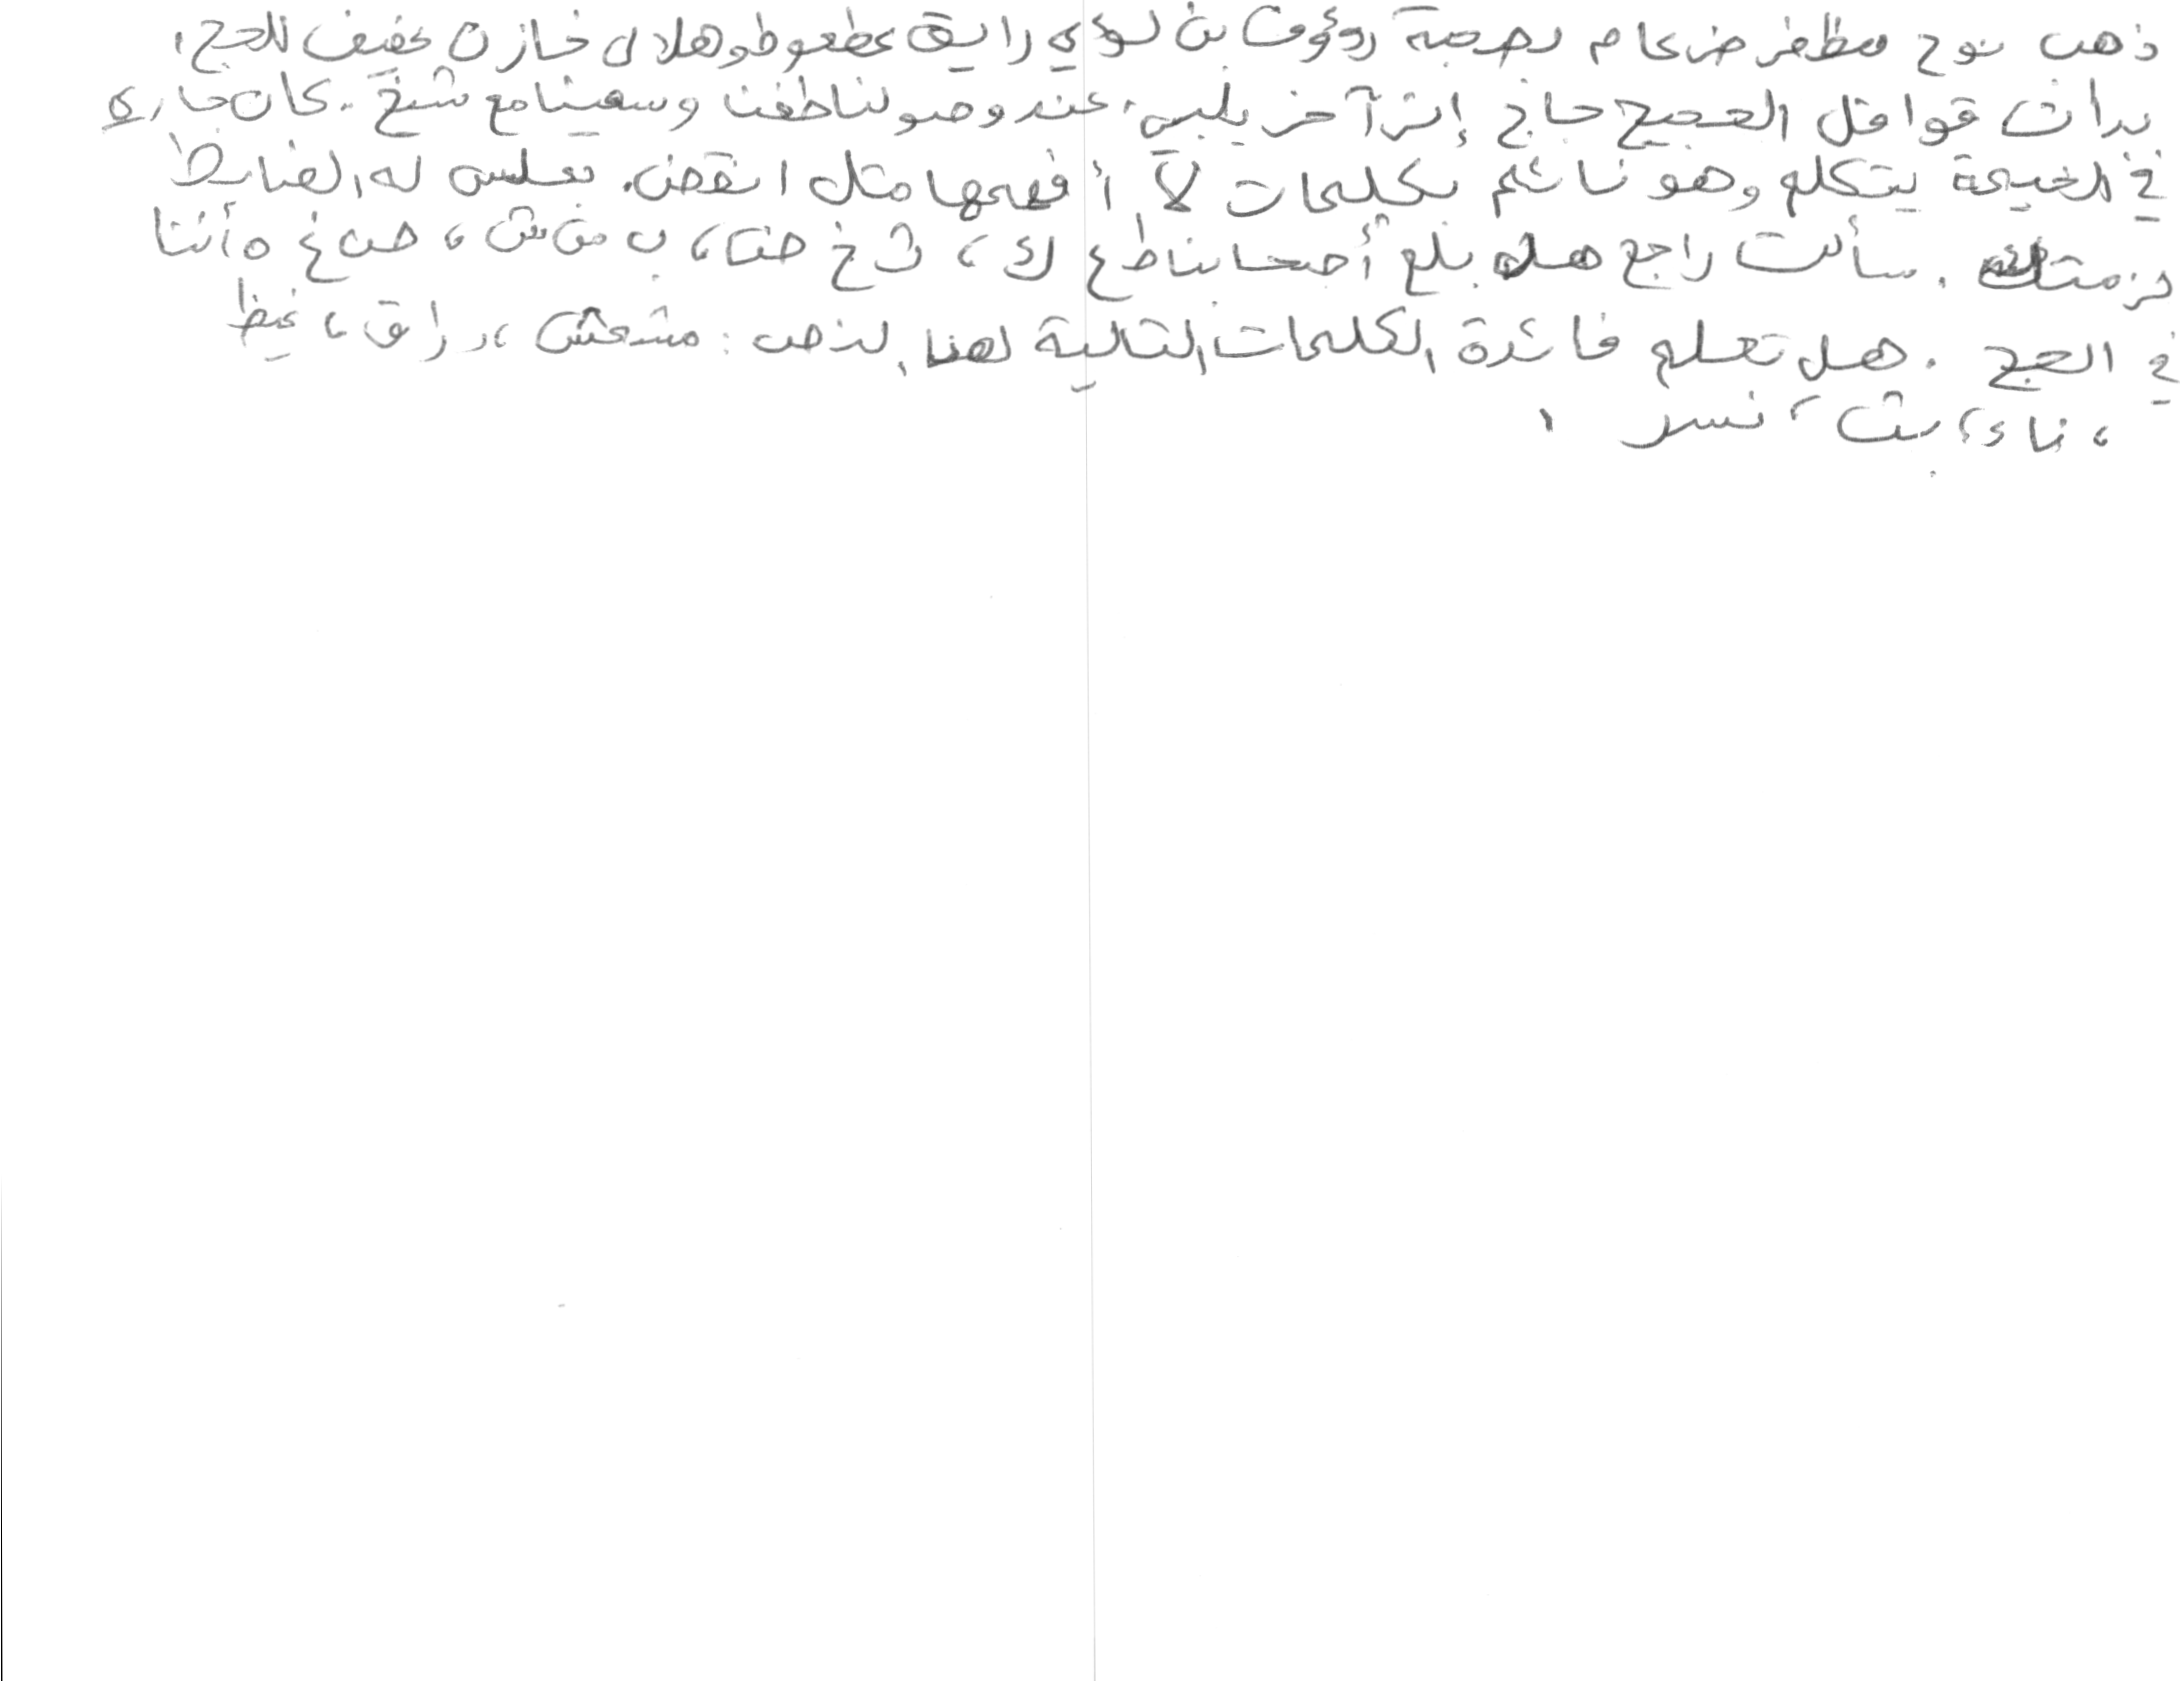 ذهب نوح مظفر ضرغام بصحبة رؤوف بن لؤي رايق عطعوط وهلال خازن عفيف للحج،
بدأت قوافل الحجيج حاج إثر آخر يلبي، عند وصولنا طفنا وسعينا مع شيخ. كان جاري
في الخيمة يتكلم وهو نائم بكلمات لا أفهمها مثل انقض، بعلبس له، الضابط
لزمتك. سألت راجع هل بلغ أصحابنا ط ع ك، ث خ حتا، ب ض ش، صه غ ه أثنا
في الحج. هل تعلم فائدة الكلمات التالية لهذا لذهب: مشمش، راق، غيظ
، ناء، بث، نسر،